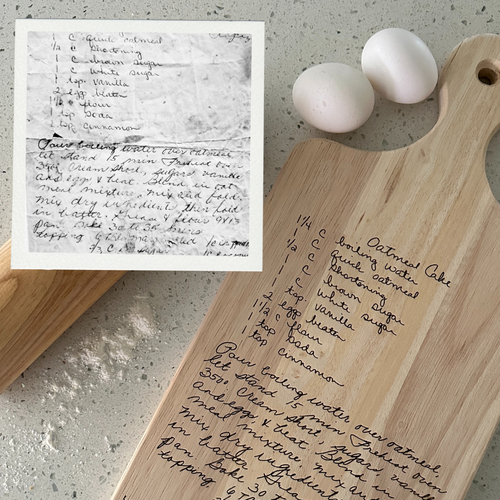 1 C quick oatmeal
1/2 C Shortening
1 C brown sugar
1 C white sugar
1 tsp. vanilla
2 egg beaten
flour
tsp soda
tsp cinnamon
Pour boiling water over oatmeal
let stand 15 min Preheat oven
350. Cream Short, sugars vanilla
and eggs & beat. Blend in oat
meal mixture, mix and fold.
mix dry ingredients then fold
in batter. Grease & flour 9x13
pan bake 30 to 35 mins
topping 6 tbl mar.
2/3 C
Oatmeal Cake
1 1/4 C boiling water
1 C quick oatmeal
1/2 C Shortening
1 C brown sugar
1 C white sugar
1 tsp. vanilla
2 egg beaten
1 1/2 C flour
1 tsp soda
1 tsp cinnamon
Pour boiling water over oatmeal
let stand 15 min Preheat oven
350. Cream Short, sugars vani
and eggs & beat. Blend in
meal mixture, mix an
mix dry ingredients
in batter. Grea
pan bake 30 T
topping 6 Tb